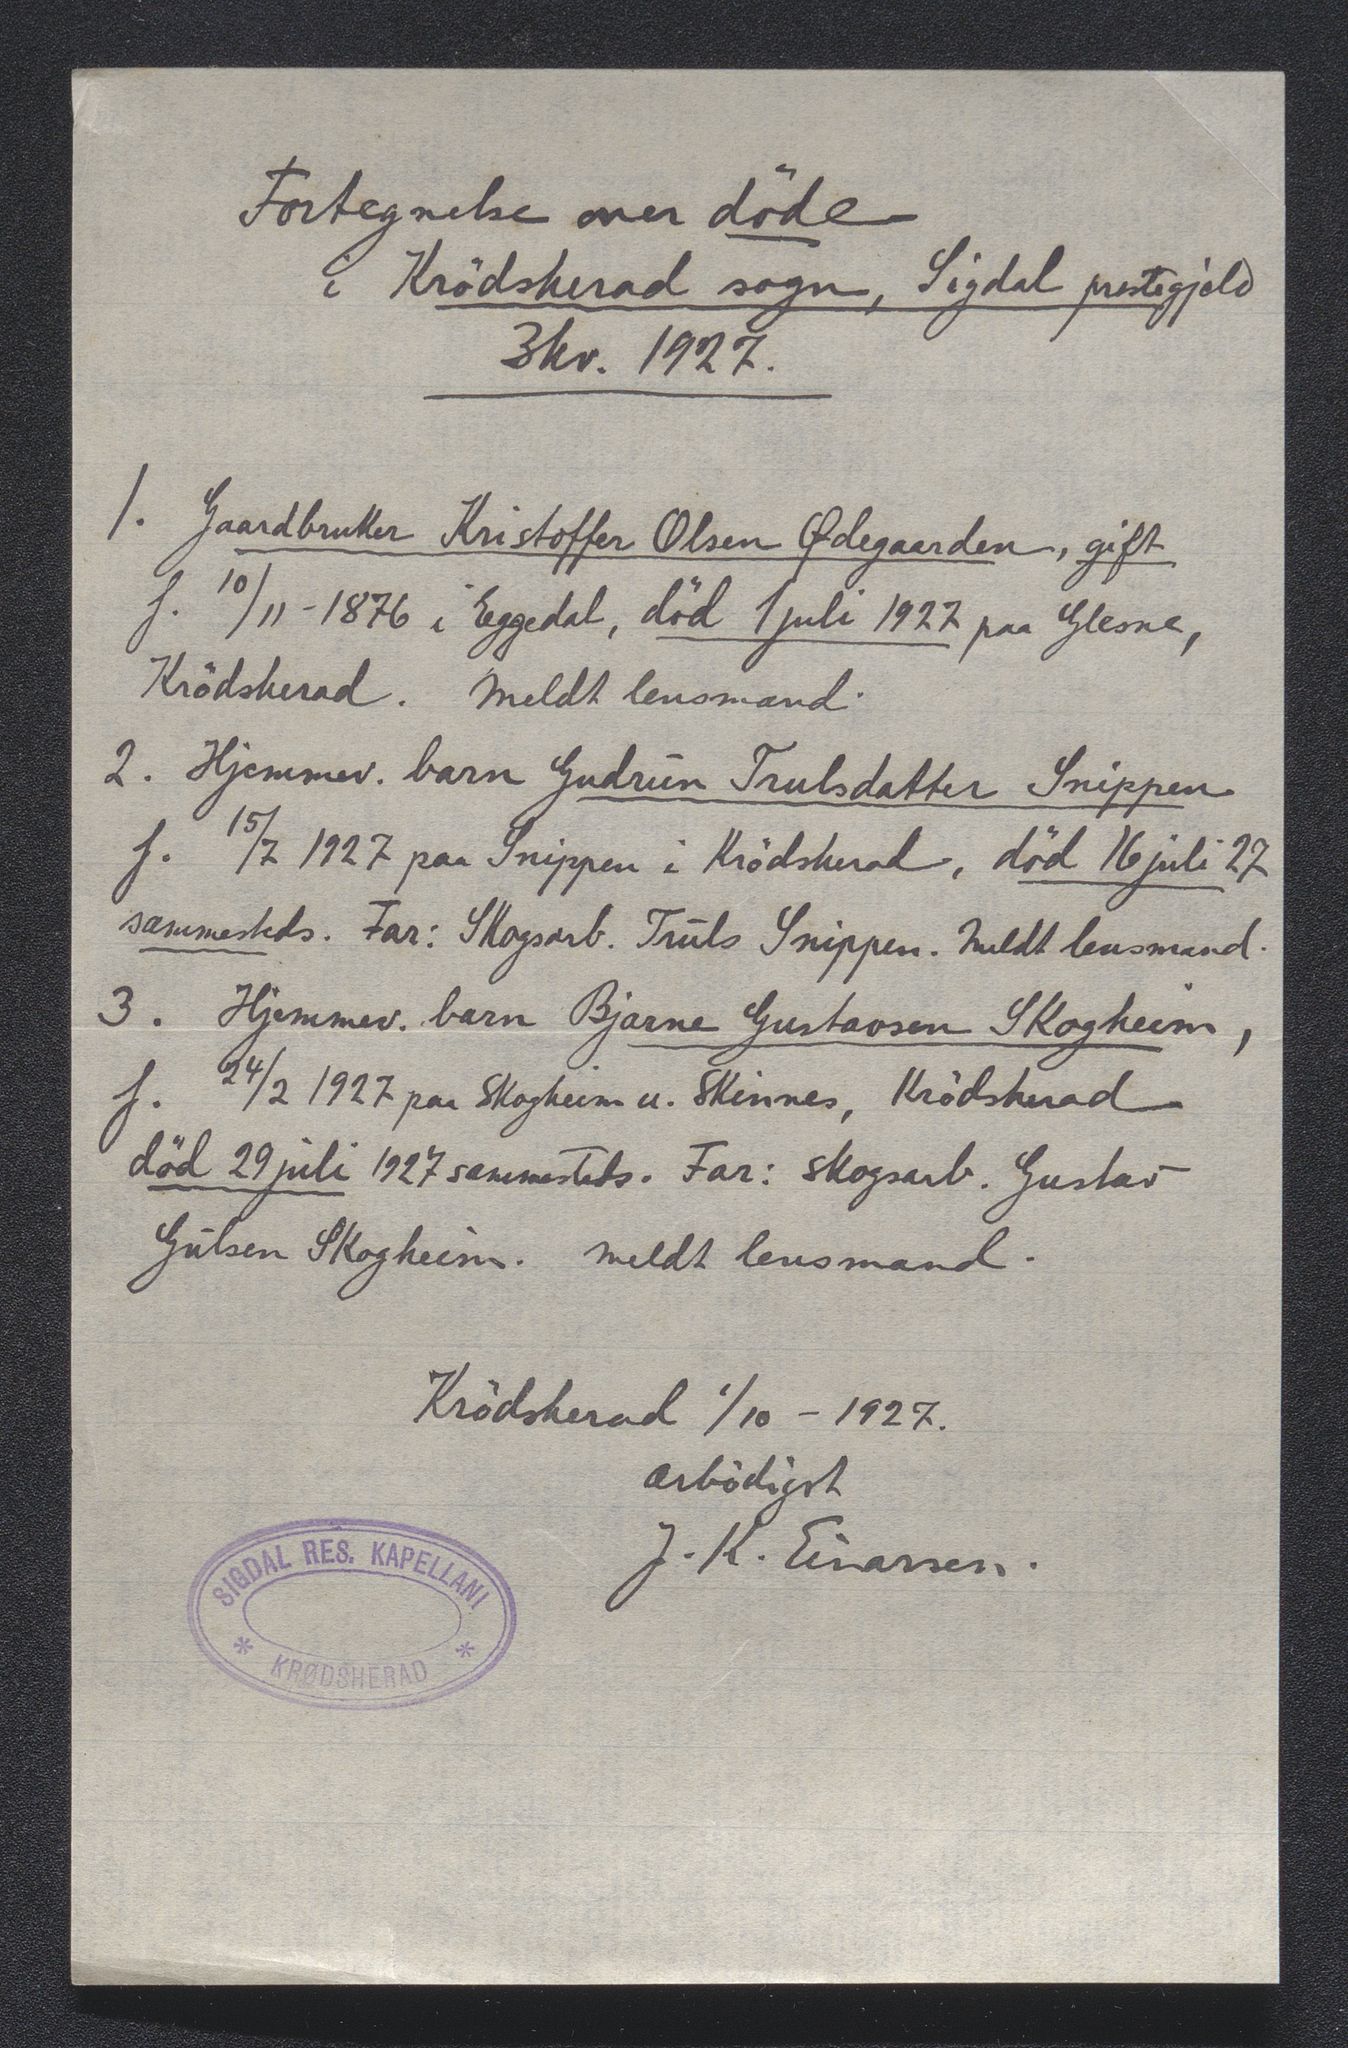 Fortegnelse over döde
i Krödsherad sogn, Sigdal prestegjeld
3kv. 1927.
1. Gaardbruker Kristoffer Olsen Ødegaarden, gift
f. 10/11 - 1876 i Eggedal, död 1 juli 1927 paa Glesne,
Krödsherad. Meldt lensmand.
2. Hjemmev. barn Gudrun Trulsdatter Snippen
f. 15/7 1927 paa Snippen i Krödsherad, död 16 juli 27
sammesteds. Far: Skogsarb. Truls Snippen. Meldt lensmand.
3. Hjemmev. barn Bjarne Gustavsen Skogheim,
f. 24/2 1927 paa Skogheim u. Skinnes, Krödsherad
död 29 juli 1927 sammesteds. Far: skogsarb. Gustav
Gulsen Skogheim. Meldt lensmand.
Krödsherad 1/10 - 1927.
ærbödigst
J. K. Einarsen.
SIGDAL RES. KAPELLANI
* KRØDSHERAD *